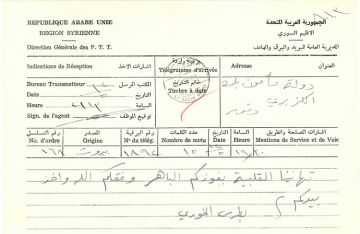 REPUBLIQUE ARABE UNIE
الجمهورية العربية المتحدة
REGION SYRIENNE
الإقليم السوري
Direction Générale des P. T. T.
المديرية العامة للبريد والبرق والهاتف
Indications de Réception
اشارات الاخذ
Télégramme d'arrivée
العنوان
Adresse
Bureau Transmetteur
المكتب المرسل
Timbre à date
Date
التاريخ
Heure
الساعة
Sign. de l'agent
توقيع الموظف
دولة مأمون بك
الكزبري
دمشق
رقم التسلسل
المصدر
رقم البرقية
عدد الكلمات
التاريخ
الساعة
اشارات الصلحة والطريق
No. d'ordre
Origine
No. du télég.
Nombre de mots
Date
Heure
Mentions de Service et de Voie
بيروت
تهانينا القلبية بفوزكم الباهر وفقكم الله واخذ
بيدكم
بطرس الخوري